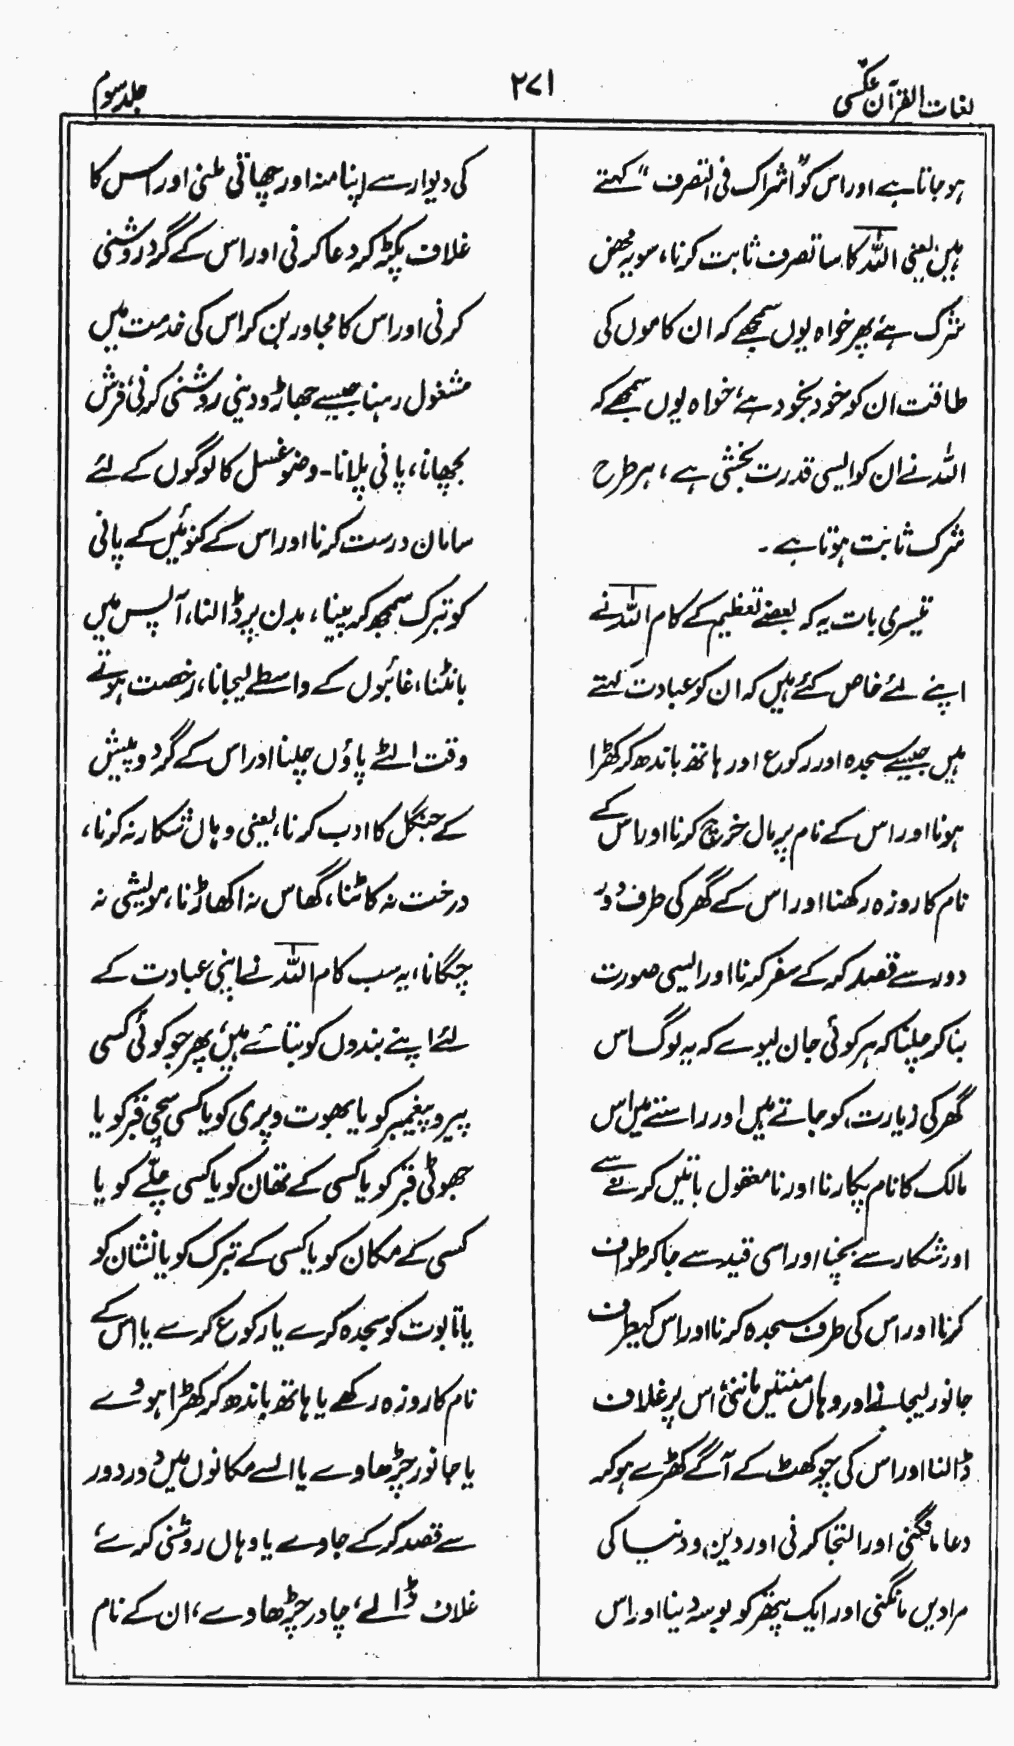 لغات القرآن عکسی
۲۷۱
جلد سوم
ہو جاتا ہے اور اس کو "اشراک فی التصرف" کہتے
ہیں یعنی اللہ کا سا تصرف ثابت کرنا، سو یہ محض
شرک ہے پھر خواہ یوں سمجھے کہ ان کاموں کی
طاقت ان کو خود بخود ہے، خواہ یوں سمجھے کہ
اللہ نے ان کو ایسی قدرت بخشی ہے، ہر طرح
شرک ثابت ہوتا ہے۔
تیسری بات یہ کہ بعضے تعظیم کے کام اللہ نے
اپنے لئے خاص کئے ہیں کہ ان کو عبادت کہتے
ہیں جیسے سجدہ اور رکوع اور ہاتھ باندھ کر کھڑا
ہونا اور اس کے نام پر مال خرچ کرنا اور اس کے
نام کا روزہ رکھنا اور اس کے گھر کی طرف دور
دور سے قصد کر کے سفر کرنا اور ایسی صورت
بنا کر چلنا کہ ہر کوئی جان لیوے کہ یہ لوگ اس
گھر کی زیارت کو جاتے ہیں اور راستے میں اس
مالک کا نام پکارنا اور نامعقول باتیں کرنے سے
اور شکار سے بچنا اور اسی قید سے جا کر طواف
کرنا اور اس کی طرف سجدہ کرنا اور اس کیطرف
جانور لیجانے اور وہاں منتیں ماننی اس پر غلاف
ڈالنا اور اس کی چوکھٹ کے آگے کھڑے ہو کر
دعا مانگنی اور التجا کرنی اور دین و دنیا کی
مرادیں مانگنی اور ایک پتھر کو بوسہ دینا اور اس
کی دیوار سے اپنا منہ اور چھاتی ملنی اور اس کا
غلاف پکڑ کر دعا کرنی اور اس کے گرد روشنی
کرنی اور اس کا مجاور بن کر اس کی خدمت میں
مشغول رہنا جیسے جھاڑو دینی روشنی کرنی، فرش
بچھانا، پانی پلانا۔ وضو غسل کا لوگوں کے لئے
سامان درست کرنا اور اس کے کنوئیں کے پانی
کو تبرک سمجھ کر پینا، بدن پر ڈالنا، آپس میں
بانٹنا، غائبوں کے واسطے لیجانا، رخصت ہوتے
وقت الٹے پاؤں چلنا اور اس کے گرد و پیش
کے جنگل کا ادب کرنا، یعنی وہاں شکار نہ کرنا،
درخت نہ کاٹنا، گھاس نہ اکھاڑنا، مویشی نہ
چگانا، یہ سب کام اللہ نے اپنی عبادت کے
لئے اپنے بندوں کو بتائے ہیں، پھر جو کوئی کسی
پیر و پیغمبر کو یا بھوت و پری کو یا کسی سچی قبر کو یا
جھوٹی قبر کو یا کسی کے تھان کو یا کسی چلّے کو یا
کسی کے مکان کو یا کسی کے تبرک کو یا نشان کو
یا تابوت کو سجدہ کرے یا رکوع کرے یا اس کے
نام کا روزہ رکھے یا ہاتھ باندھ کر کھڑا ہووے
یا جانور چڑھاوے یا ایسے مکانوں میں دور دور
سے قصد کر کے جاوے یا وہاں روشنی کرے،
غلاف ڈالے، چادر چڑھاوے، ان کے نام